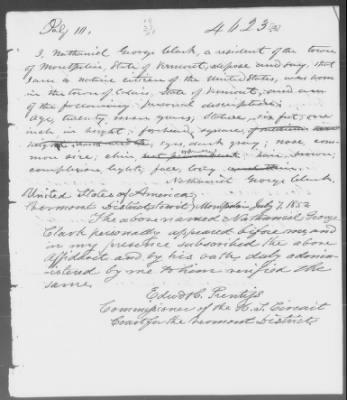 July 10.
4623
I, Nathaniel George Clark, a resident of the town
of Montpelier, State of Vermont, depose and say, that
I am a native citizen of the United States, was born
in the town of Calais, State of Vermont, and am
of the following personal description:
Age, twenty seven years; Stature, six feet, one
inch in height; forehead, square,
eyes, dark gray; nose, com-
mon size; chin, hair, brown;
complexion light; face, long
Nathaniel George Clark.
United States of America,
Vermont District to wit, Montpelier July 7, 1852
The above named Nathaniel George
Clark personally appeared before me, and
in my presence subscribed the above
affidavit and by his oath, duly admin-
istered by me to him verified the
same.
Edwd C. Prentiss
Commissioner of the U.S. Circuit
Court for the Vermont District